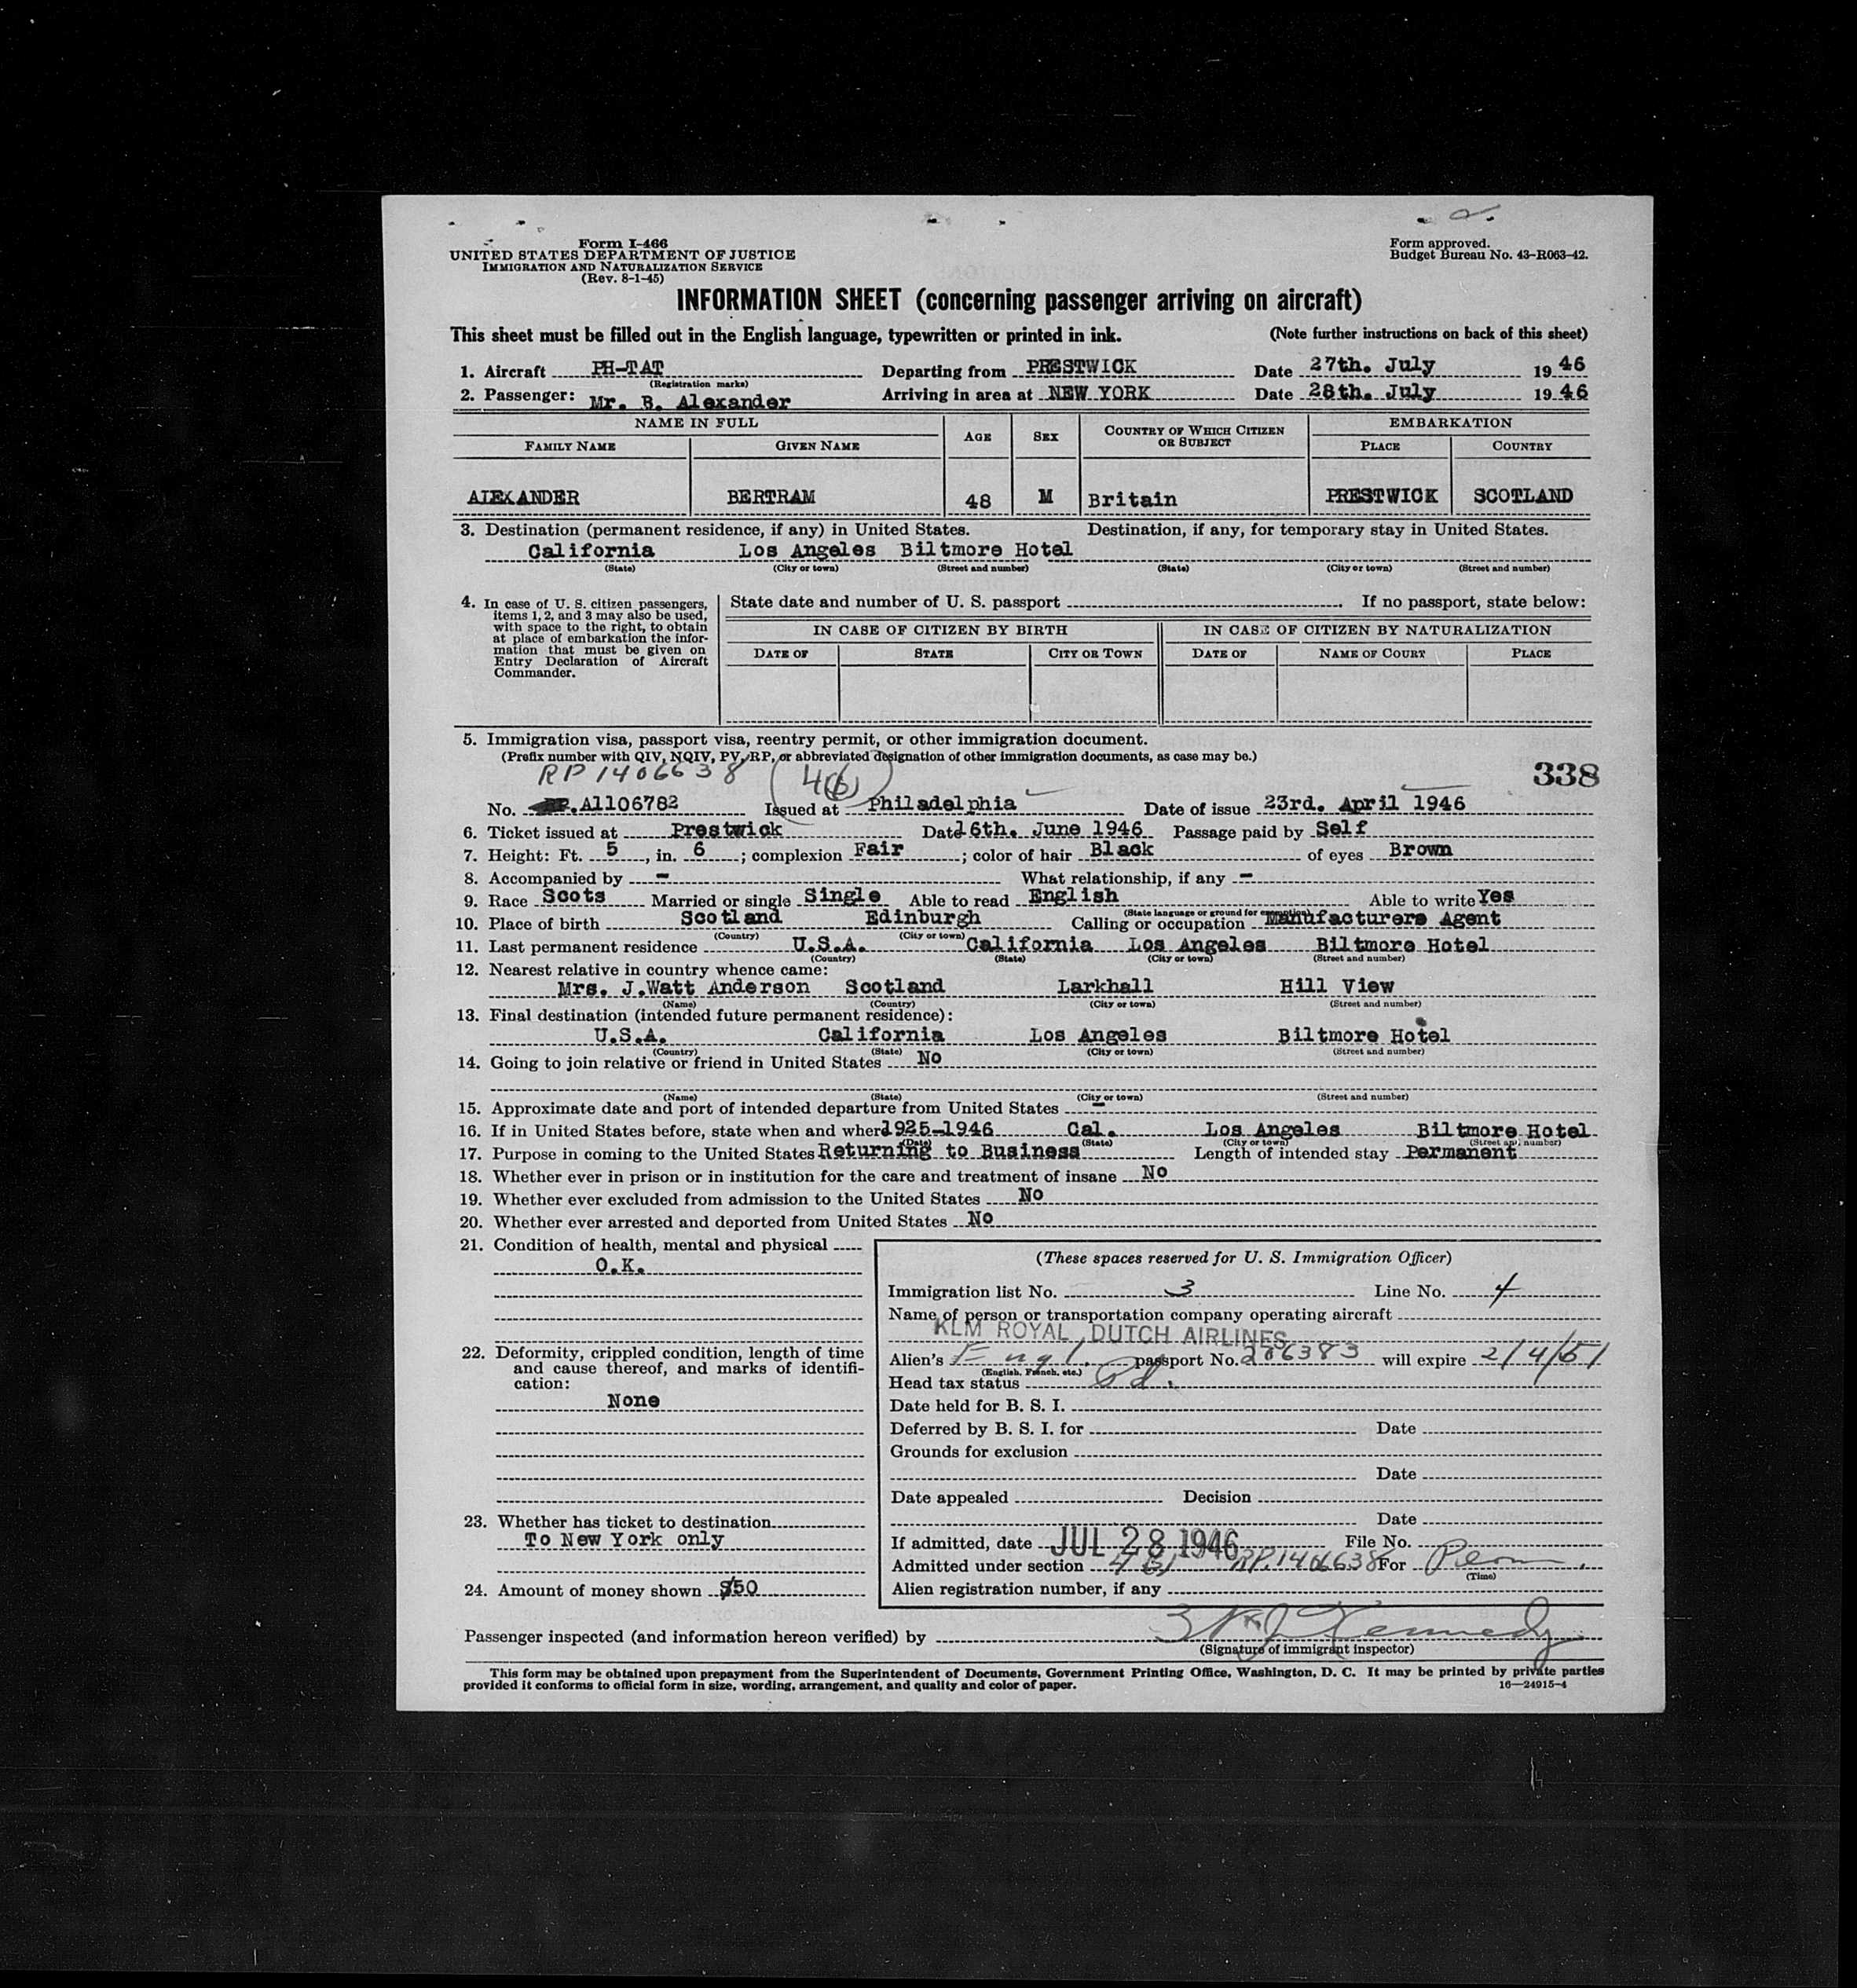 Form I-466
UNITED STATES DEPARTMENT OF JUSTICE
IMMIGRATION AND NATURALIZATION SERVICE
(Rev. 8-1-45)
Form approved.
Budget Bureau No. 43-R063-42.
INFORMATION SHEET (concerning passenger arriving on aircraft)
This sheet must be filled out in the English language, typewritten or printed in ink. (Note further instructions on back of this sheet)
1. Aircraft PH-TAT Departing from PRESTWICK Date 27th. July 1946
(Registration marks)
2. Passenger: Mr. B. Alexander Arriving in area at NEW YORK Date 28th. July 1946
NAME IN FULL AGE SEX COUNTRY OF WHICH CITIZEN OR SUBJECT EMBARKATION
FAMILY NAME GIVEN NAME PLACE COUNTRY
ALEXANDER BERTRAM 48 M Britain PRESTWICK SCOTLAND
3. Destination (permanent residence, if any) in United States. Destination, if any, for temporary stay in United States.
California Los Angeles Biltmore Hotel
(State) (City or town) (Street and number) (State) (City or town) (Street and number)
4. In case of U. S. citizen passengers, items 1, 2, and 3 may also be used, with space to the right, to obtain at place of embarkation the information that must be given on Entry Declaration of Aircraft Commander.
State date and number of U. S. passport . If no passport, state below:
IN CASE OF CITIZEN BY BIRTH IN CASE OF CITIZEN BY NATURALIZATION
DATE OF STATE CITY OR TOWN DATE OF NAME OF COURT PLACE
5. Immigration visa, passport visa, reentry permit, or other immigration document.
(Prefix number with QIV, NQIV, PV, RP, or abbreviated designation of other immigration documents, as case may be.)
RP 1406638 4(b) 338
No. A1106782 Issued at Philadelphia Date of issue 23rd. April 1946
6. Ticket issued at Prestwick Date 16th. June 1946 Passage paid by Self
7. Height: Ft. 5, in. 6; complexion Fair; color of hair Black of eyes Brown
8. Accompanied by - What relationship, if any -
9. Race Scots Married or single Single Able to read English Able to write Yes
(State language or ground for exemption)
10. Place of birth Scotland Edinburgh Calling or occupation Manufacturers Agent
(Country) (City or town)
11. Last permanent residence U.S.A. California Los Angeles Biltmore Hotel
(Country) (State) (City or town) (Street and number)
12. Nearest relative in country whence came:
Mrs. J.Watt Anderson Scotland Larkhall Hill View
(Name) (Country) (City or town) (Street and number)
13. Final destination (intended future permanent residence):
U.S.A. California Los Angeles Biltmore Hotel
(Country) (State) (City or town) (Street and number)
14. Going to join relative or friend in United States No
(Name) (State) (City or town) (Street and number)
15. Approximate date and port of intended departure from United States -
16. If in United States before, state when and where 1925-1946 Cal. Los Angeles Biltmore Hotel
(Date) (State) (City or town) (Street and number)
17. Purpose in coming to the United States Returning to Business Length of intended stay Permanent
18. Whether ever in prison or in institution for the care and treatment of insane No
19. Whether ever excluded from admission to the United States No
20. Whether ever arrested and deported from United States No
21. Condition of health, mental and physical
O.K.
22. Deformity, crippled condition, length of time and cause thereof, and marks of identification:
None
23. Whether has ticket to destination
To New York only
24. Amount of money shown $50
(These spaces reserved for U. S. Immigration Officer)
Immigration list No. 3 Line No. 4
Name of person or transportation company operating aircraft
KLM ROYAL DUTCH AIRLINES
Alien's Engl. passport No. 206383 will expire 2/4/51
(English, French, etc.)
Head tax status Pd.
Date held for B. S. I.
Deferred by B. S. I. for Date
Grounds for exclusion
Date
Date appealed Decision
Date
If admitted, date JUL 28 1946 File No.
Admitted under section 4(B) RP.1406638 For Perm.
(Time)
Alien registration number, if any
Passenger inspected (and information hereon verified) by Kennedy
(Signature of immigrant inspector)
This form may be obtained upon prepayment from the Superintendent of Documents, Government Printing Office, Washington, D. C. It may be printed by private parties
provided it conforms to official form in size, wording, arrangement, and quality and color of paper. 16—24915-4